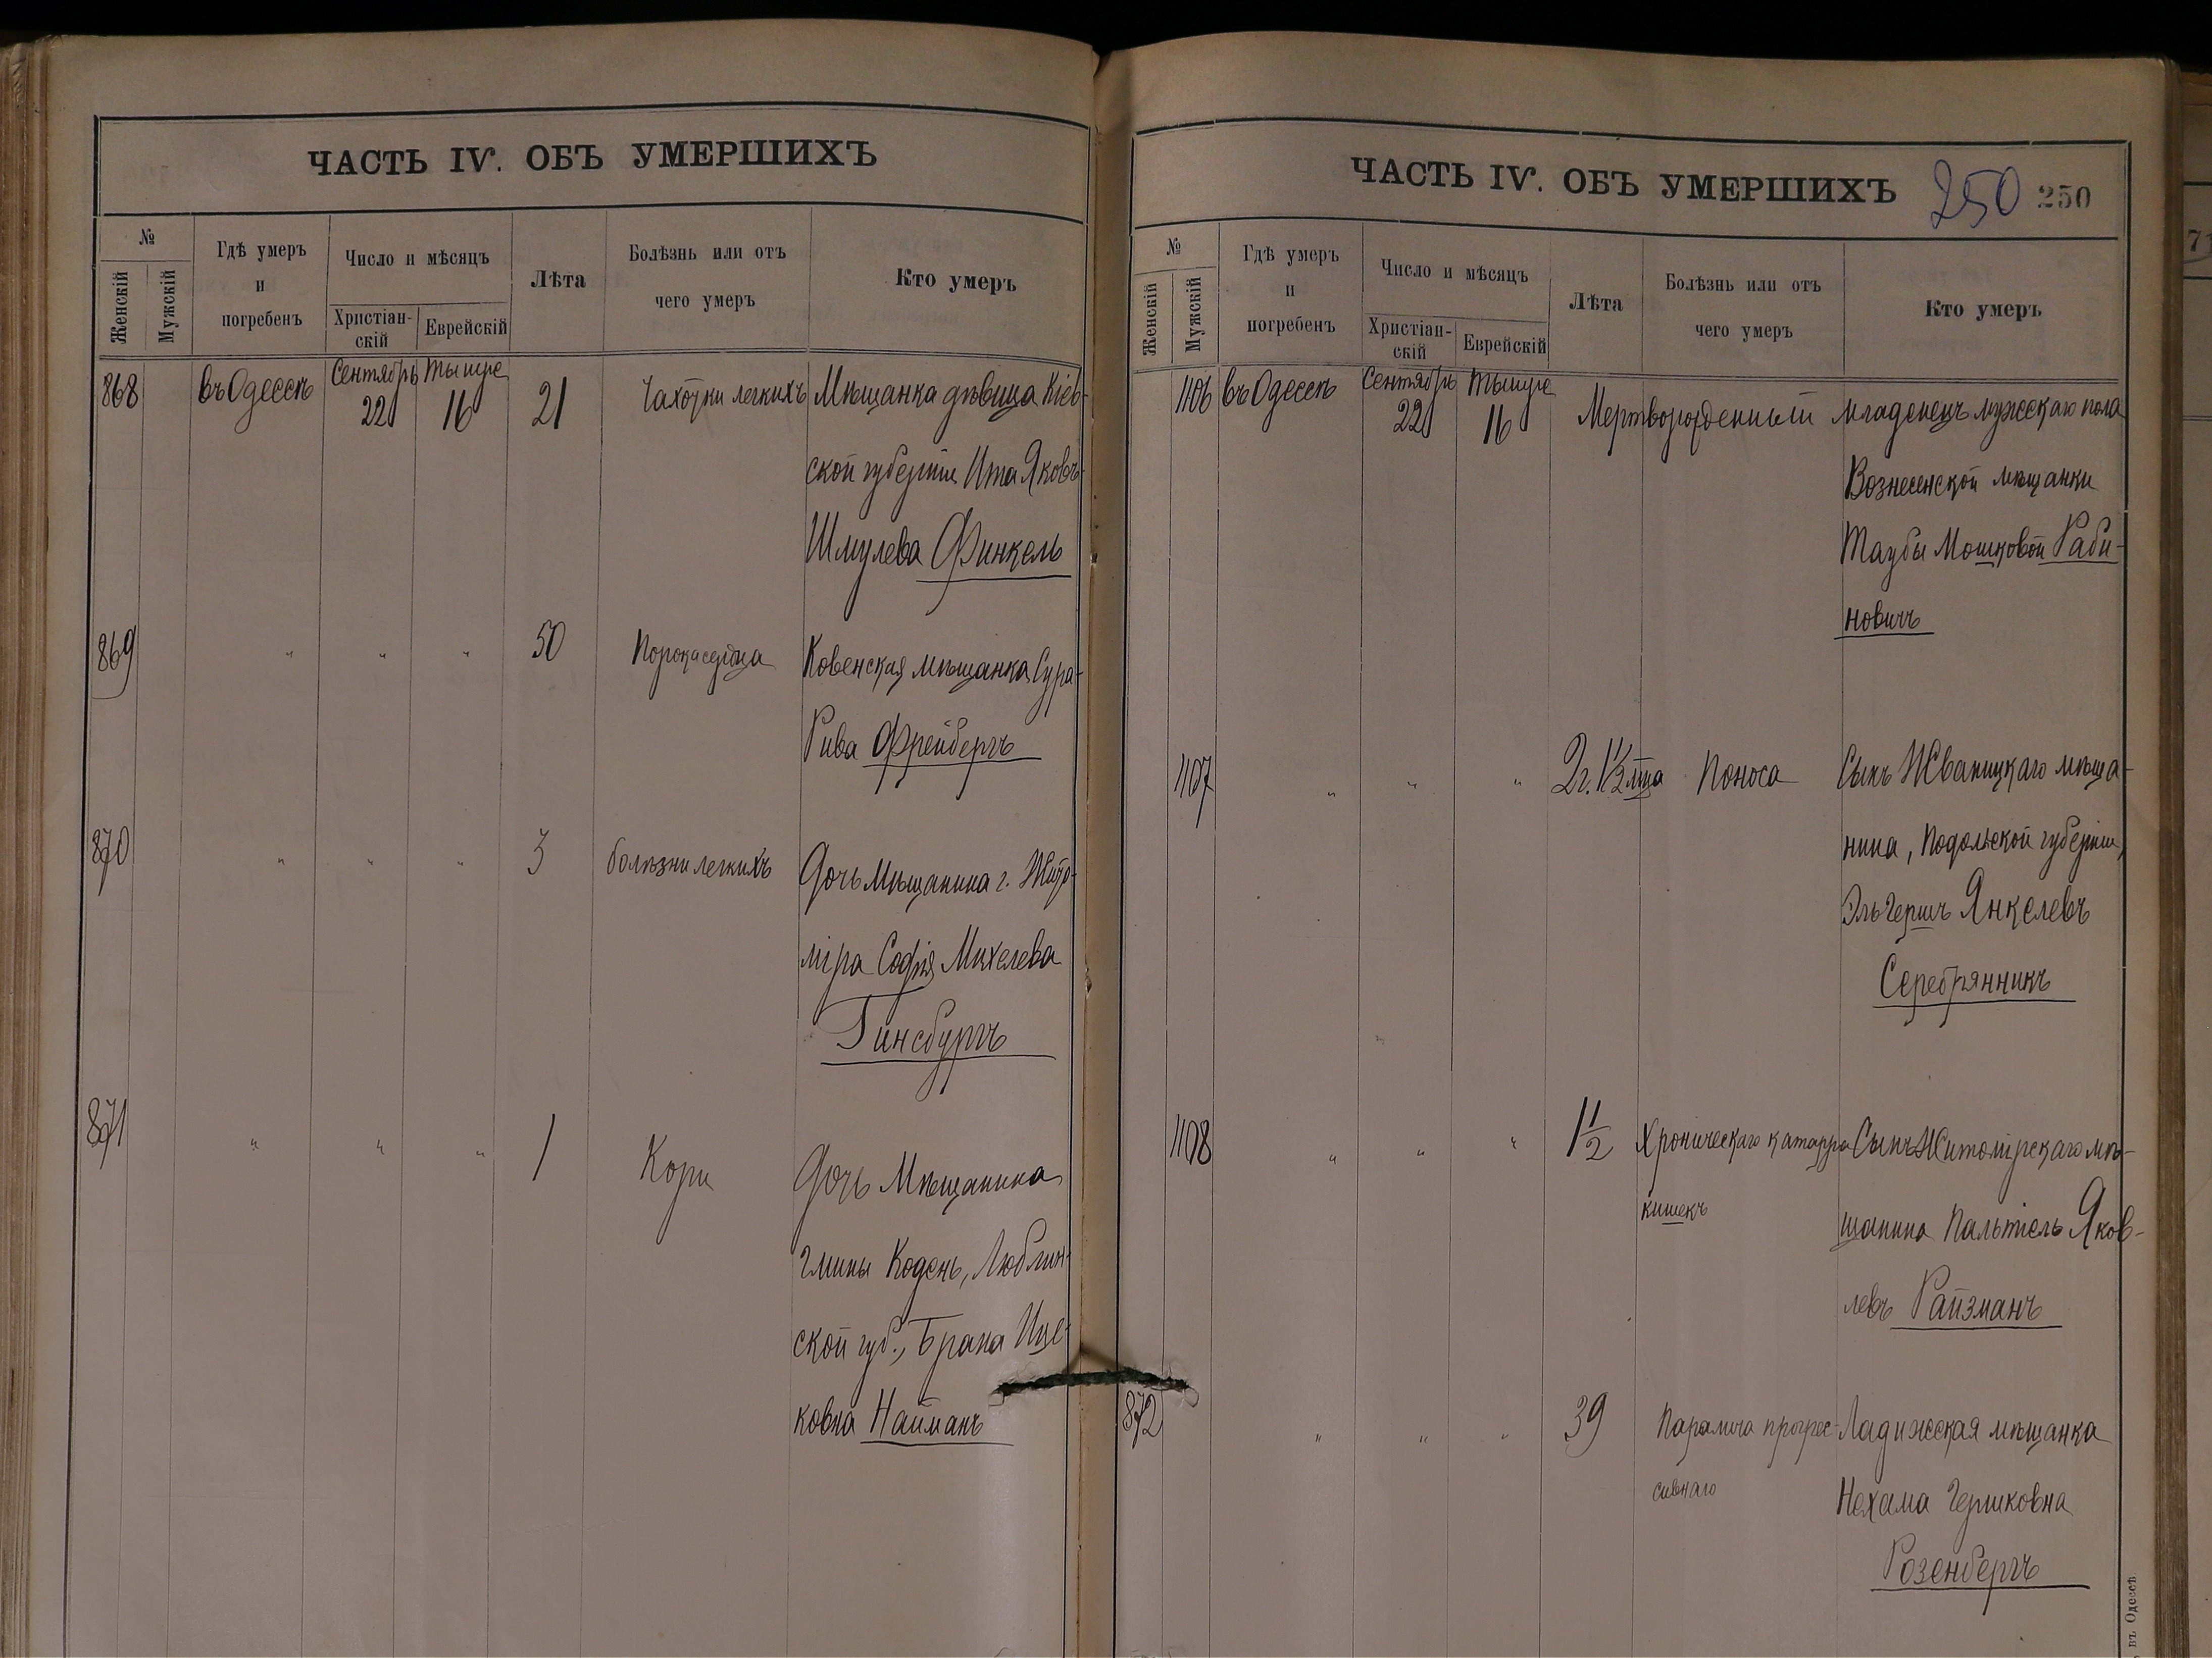 ЧАСТЬ IV. ОБЪ УМЕРШИХЪ
№
Женскій
Мужскій
Гдѣ умеръ
и
погребенъ
Число и мѣсяцъ
Христіан-
скій
Еврейскій
Лѣта
Болѣзнь или отъ
чего умеръ
Кто умеръ
868 въ Одессѣ Сентябрь 22 Тышре 16 21 Чахотки легкихъ Мѣщанка дѣвица Кіев-
ской губерніи Ита Яковъ-
Шмулева Финкель
869 " " " 50 Порока сердца Ковенская мѣщанка Сура-
Рива Фрейбергъ
870 " " " 3 болѣзни легкихъ Дочь Мѣщанина г. Жито-
міра Софія Михелева
Гинсбургъ
871 " " " 1 Кори Дочь Мѣщанина
гмины Кодень, Люблин-
ской губ., Брана Ице-
ковна Найманъ
ЧАСТЬ IV. ОБЪ УМЕРШИХЪ 250 250
№
Женскій
Мужскій
Гдѣ умеръ
и
погребенъ
Число и мѣсяцъ
Христіан-
скій
Еврейскій
Лѣта
Болѣзнь или отъ
чего умеръ
Кто умеръ
1106 въ Одессѣ Сентябрь 22 Тышре 16 Мертворожденный младенецъ мужескаго пола
Вознесенской мѣщанки
Таубы Мошковой Раби-
новичъ
1107 " " " 2 г. 1½ мца Поноса Сынъ Жваницкаго мѣща-
нина, Подольской губерніи,
Эль Гершъ Янкелевъ
Серебрянникъ
1108 " " " 1½ Хроническаго катарра Сынъ Житомірскаго мѣ-
кишекъ
щанина Пальтіель Яков-
левъ Райзманъ
872 " " " 39 Паралича прогрес- Ладижская мѣщанка
сивнаго
Нехама Гершковна
Розенбергъ
въ Одессѣ
71